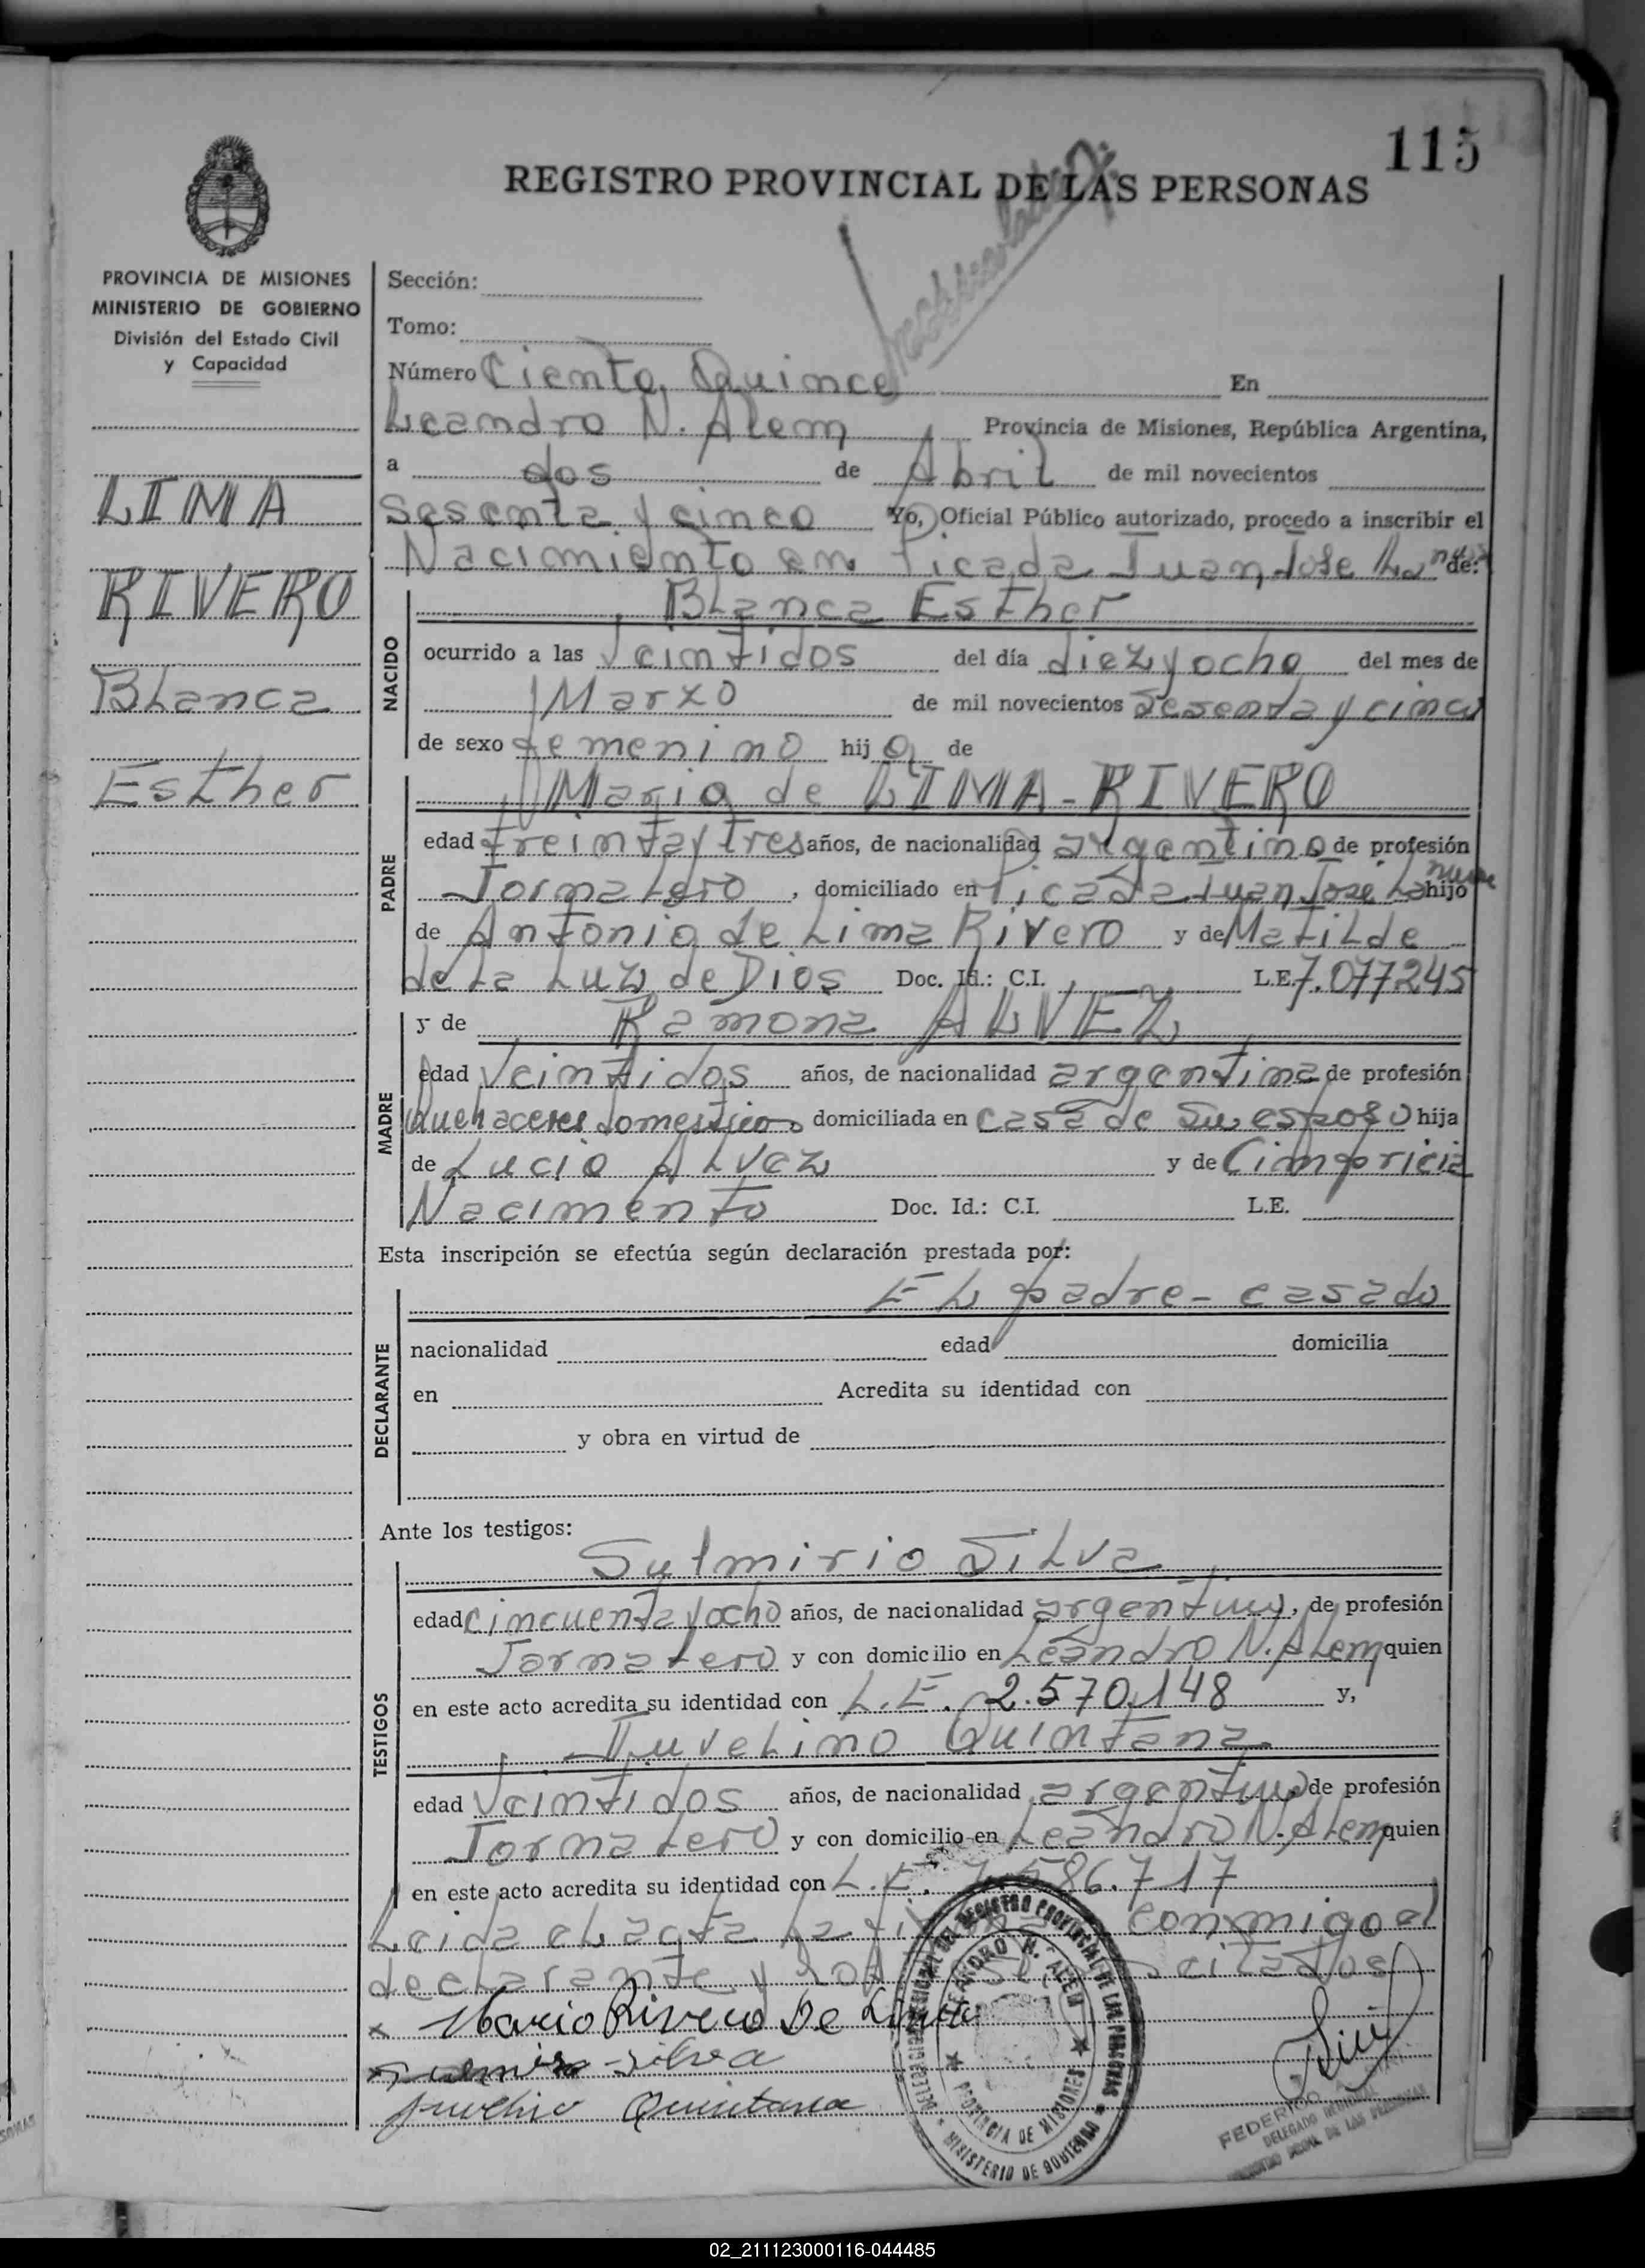 115
REGISTRO PROVINCIAL DE LAS PERSONAS
PROVINCIA DE MISIONES
MINISTERIO DE GOBIERNO
División del Estado Civil
y Capacidad
LIMA
RIVERO
Blanca
Esther
Sección:
Tomo:
Número Ciento Quince En
Leandro N. Alem Provincia de Misiones, República Argentina,
a dos de Abril de mil novecientos
Sesenta y cinco Yo, Oficial Público autorizado, procedo a inscribir el
Nacimiento en Picada Juan Jose de:
NACIDO
Blanca Esther
ocurrido a las Veintidos del día diez y ocho del mes de
Marzo de mil novecientos Sesenta y cinco
de sexo femenino hija de
PADRE
Mario de LIMA-RIVERO
edad treinta y tres años, de nacionalidad argentino de profesión
Jornalero, domiciliado en Picada Juan Jose hijo
de Antonio de Lima Rivero y de Matilde
de La Luz de Dios Doc. Id.: C.I. L.E. 7.077245
MADRE
y de Ramona ALVEZ
edad Veintidos años, de nacionalidad argentina de profesión
Quehaceres domesticos domiciliada en casa de su esposo hija
de Lucio Alvez y de
Nacimento Doc. Id.: C.I. L.E.
Esta inscripción se efectúa según declaración prestada por:
DECLARANTE
El padre - casado
nacionalidad edad domicilia
en Acredita su identidad con
y obra en virtud de
Ante los testigos:
TESTIGOS
Sulmirio Silva
edad cincuenta y ocho años, de nacionalidad argentino, de profesión
Jornalero y con domicilio en Leandro N. Alem quien
en este acto acredita su identidad con L.E. 2.570.148 y,
Juvelino Quintana
edad Veintidos años, de nacionalidad argentino de profesión
Jornalero y con domicilio en Leandro N. Alem quien
en este acto acredita su identidad con L.E. 7.586.717
Leida el acta la conmigo el
declarante y los citados
x Mario Rivero De Lima
Silva
Quintana
LEANDRO N. ALEM
PROVINCIA DE MISIONES
MINISTERIO DE GOBIERNO
REGISTRO PROVINCIAL DE LAS PERSONAS
FEDERICO
DELEGADO
DE LAS PERSONAS
02_211123000116-044485